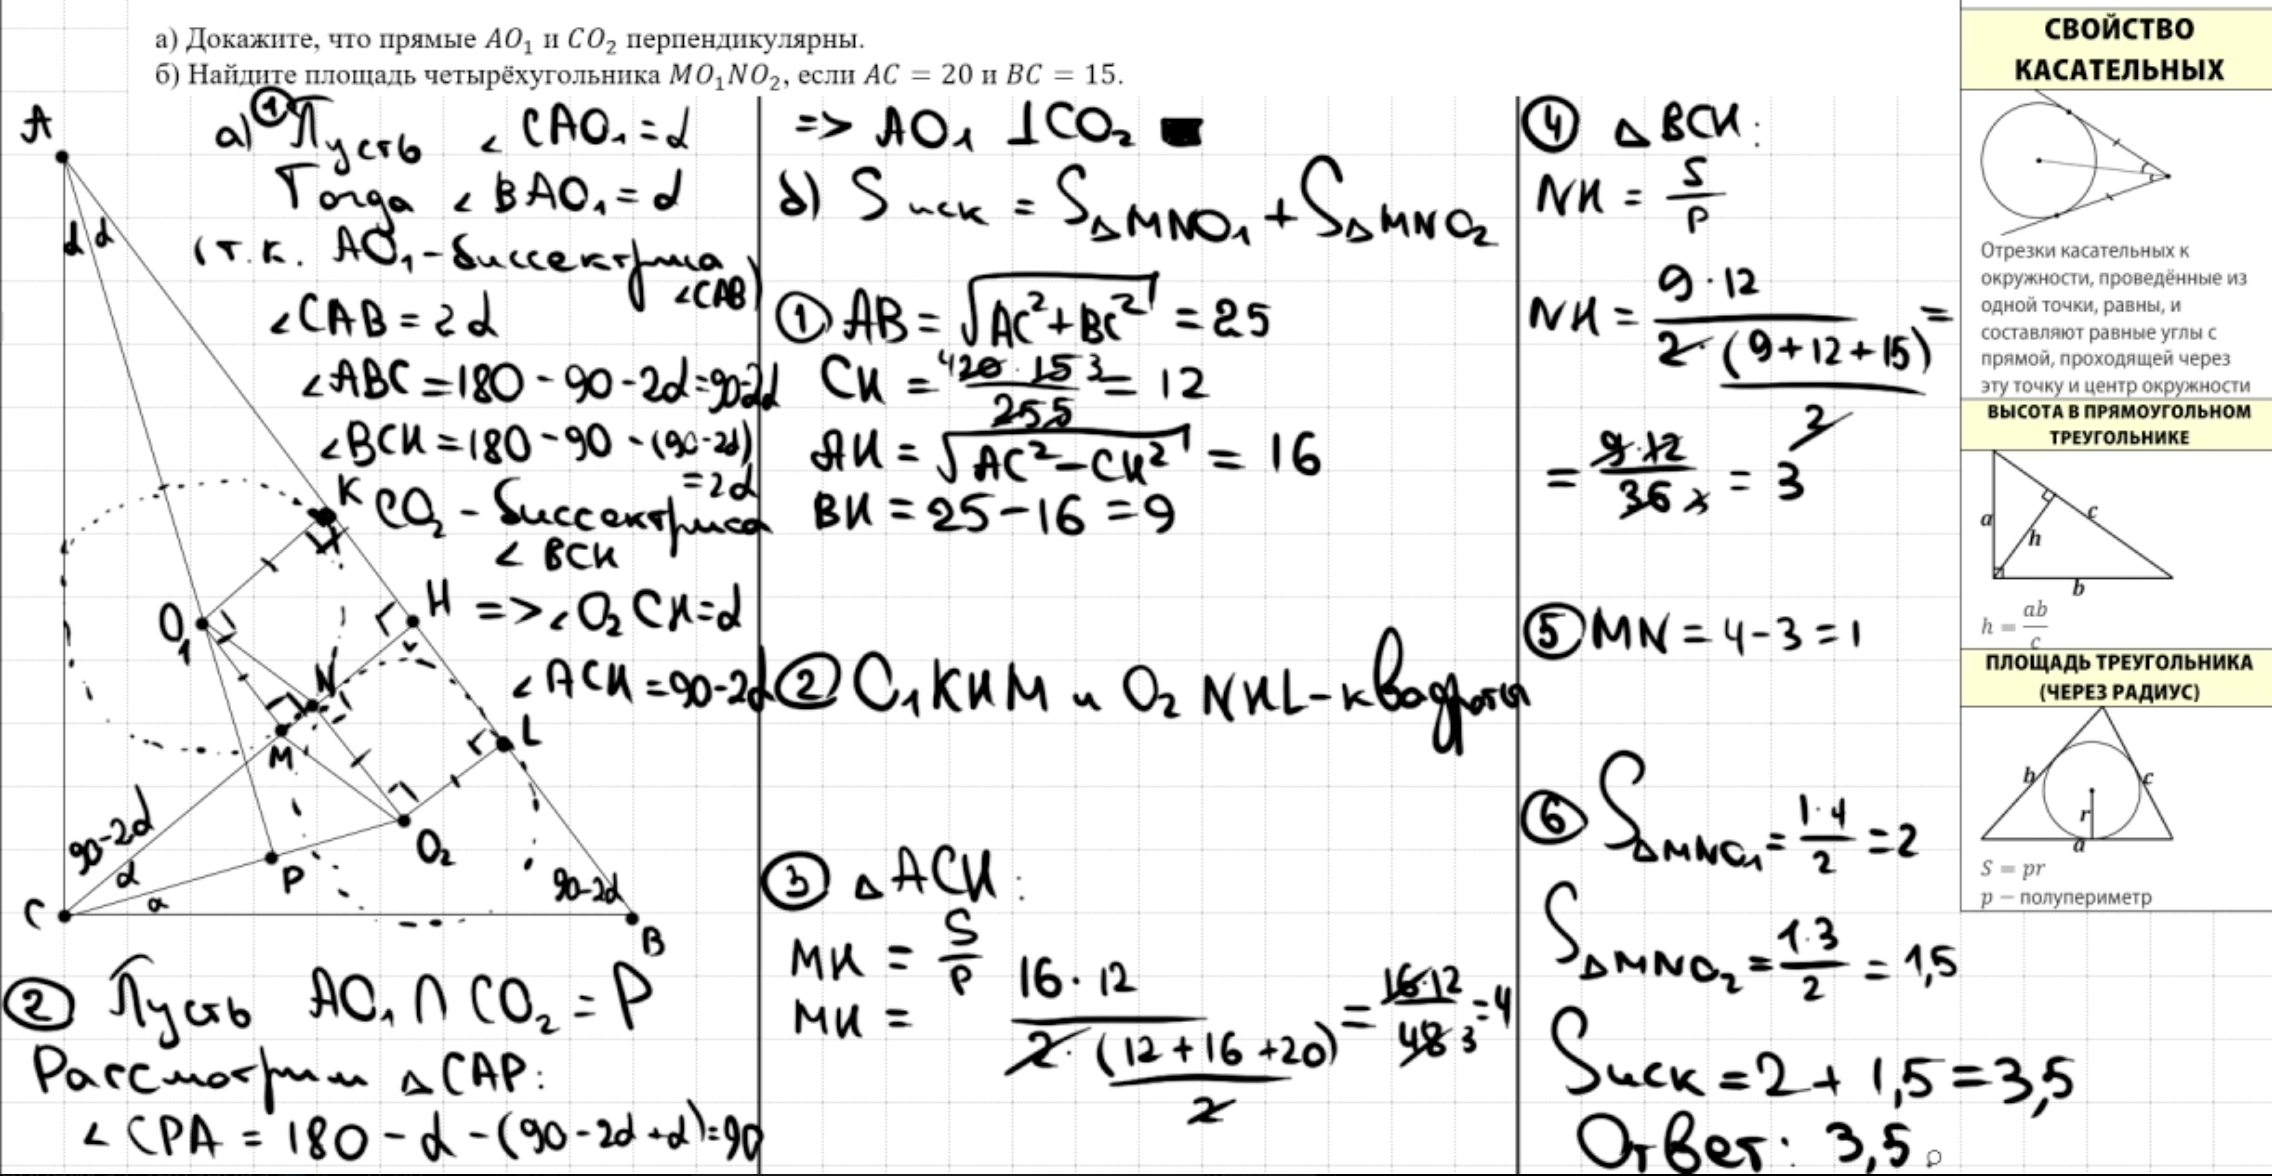 а) Докажите, что прямые AO₁ и CO₂ перпендикулярны.
б) Найдите площадь четырёхугольника MO₁NO₂, если AC = 20 и BC = 15.
A
α α
K
H
O₁
N
M
L
O₂
P
90-2α
α
α
90-2α
C
B
а) ① Пусть ∠CAO₁ = α
Тогда ∠BAO₁ = α
(т.к. AO₁ - биссектриса
∠CAB)
∠CAB = 2α
∠ABC = 180 - 90 - 2α = 90-2α
∠BCH = 180 - 90 - (90-2α)
= 2α
CO₂ - биссектриса
∠BCH
=> ∠O₂CH = α
∠ACH = 90-2α
② Пусть AO₁ ∩ CO₂ = P
Рассмотрим △CAP:
∠CPA = 180 - α - (90-2α+α) = 90
=> AO₁ ⊥ CO₂ ■
б) Sиск = S△MNO₁ + S△MNO₂
① AB = √(AC² + BC²) = 25
CH = 4 20 · 15 3 / 25 5 = 12
AH = √(AC² - CH²) = 16
BH = 25 - 16 = 9
② O₁KHM и O₂NHL - квадраты
③ △ACH:
MH = S/P
MH = 16 · 12 / 2 · (12 + 16 + 20) / 2 = 16·12 / 48 3 = 4
④ △BCH:
NH = S/P
NH = 9 · 12 / 2 · (9 + 12 + 15) / 2 =
= 9·12 / 36 3 = 3
⑤ MN = 4 - 3 = 1
⑥ S△MNO₁ = 1·4 / 2 = 2
S△MNO₂ = 1·3 / 2 = 1,5
Sиск = 2 + 1,5 = 3,5
Ответ: 3,5.
СВОЙСТВО
КАСАТЕЛЬНЫХ
Отрезки касательных к
окружности, проведённые из
одной точки, равны, и
составляют равные углы с
прямой, проходящей через
эту точку и центр окружности
ВЫСОТА В ПРЯМОУГОЛЬНОМ
ТРЕУГОЛЬНИКЕ
a
h
c
b
h = ab/c
ПЛОЩАДЬ ТРЕУГОЛЬНИКА
(ЧЕРЕЗ РАДИУС)
b
c
r
a
S = pr
p — полупериметр